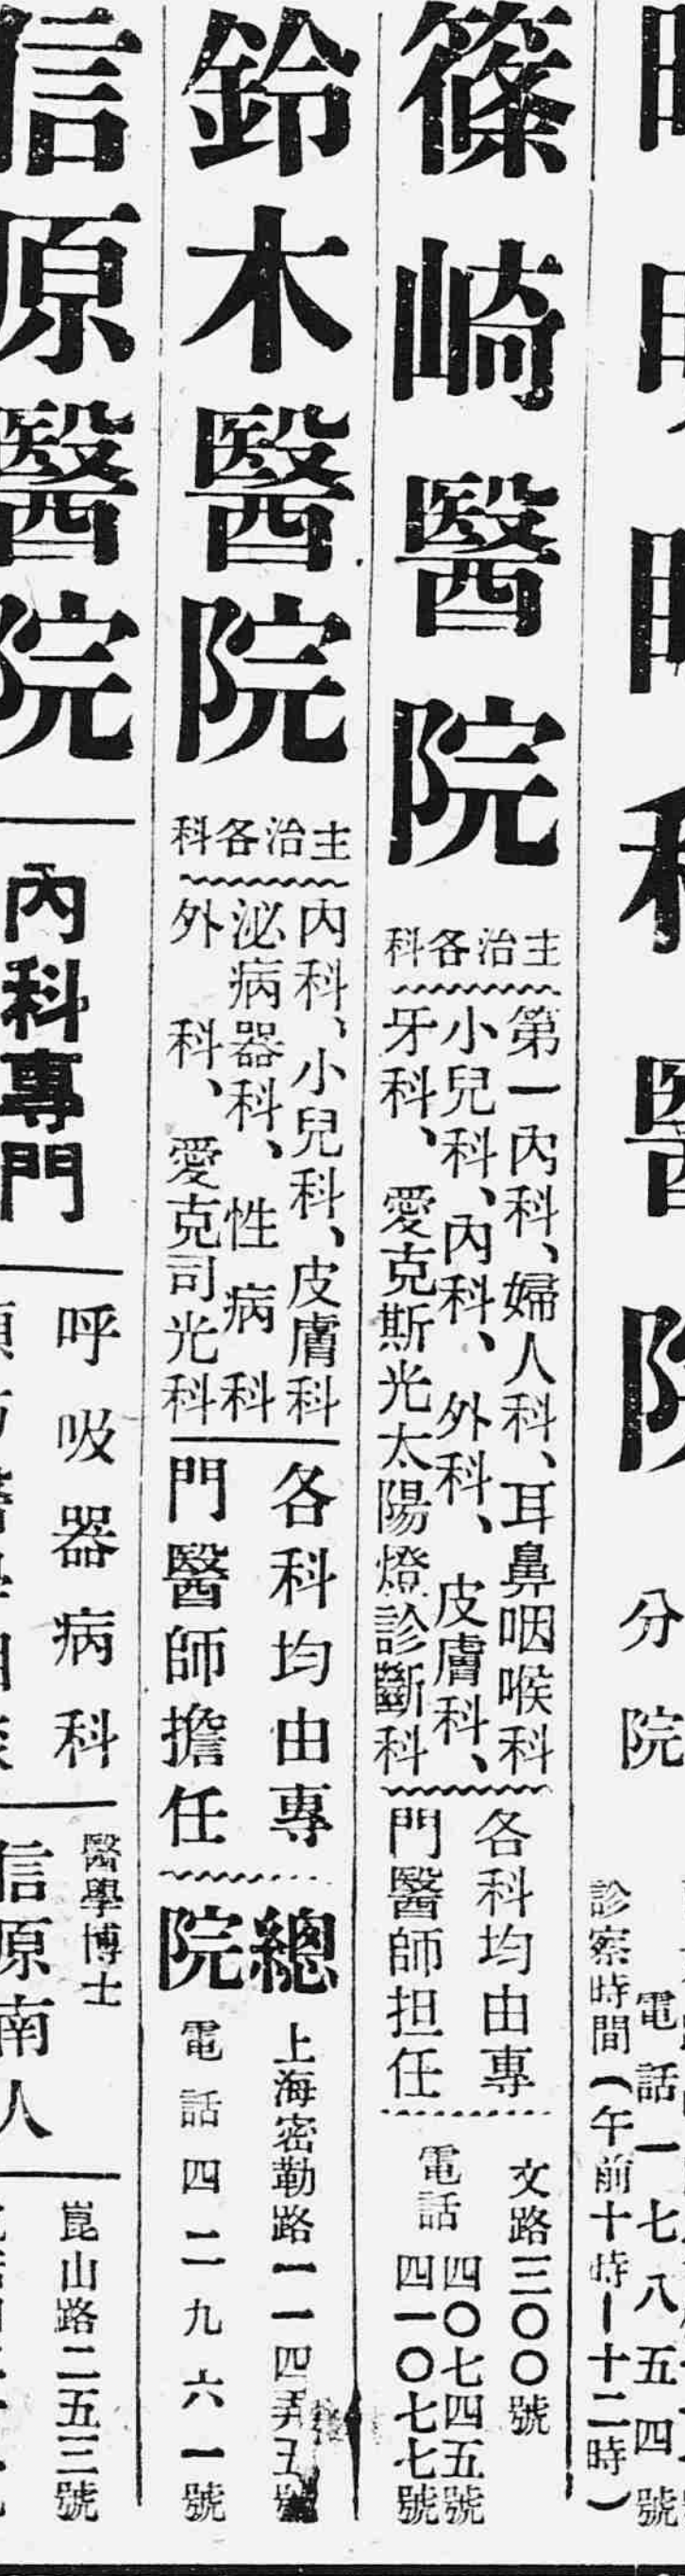 醫
分院
電話一七八五四號
診察時間（午前十時ー十二時）
篠崎醫院
主治各科
第一內科、婦人科、耳鼻咽喉科
小兒科、內科、外科、皮膚科、
牙科、愛克斯光太陽燈診斷科
各科均由專
門醫師担任
文路三〇〇號
電話
四〇七四五號
四一〇七七號
鈴木醫院
主治各科
內科、小兒科、皮膚科
泌病器科、性病科
外科、愛克司光科
各科均由專
門醫師擔任
總院
上海密勒路一一四弄五號
電話四二九六一號
信原醫院
內科專門
呼吸器病科
醫學博士
信原南人
崑山路二五三號